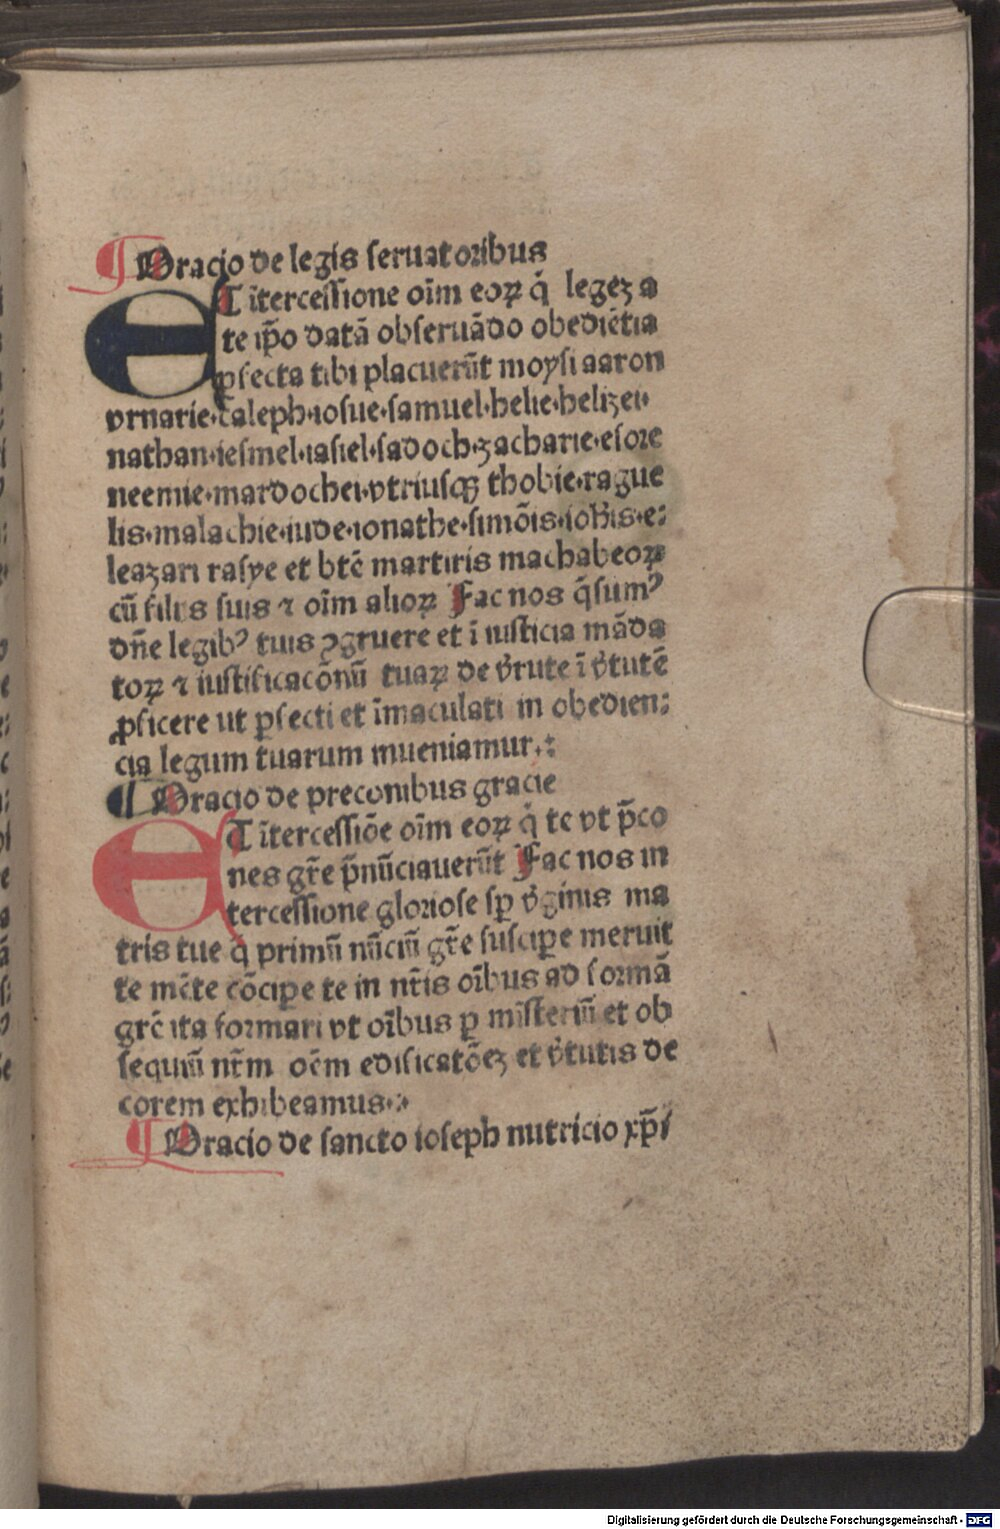 Oracio de legis seruatoribus
ET ītercessione oīm eoꝝ q̄ legeꝫ a
te ip̄o datā obseruādo obediētia
ꝑfecta tibi placuerūt moysi aaron
vrnarie·caleph·iosue·samuel·helie·helizei·
nathan·iesmel·iasiel·sadoch·zacharie·esore
neemie·mardochei·vtriusqꝫ thobie·rague
lis·malachie·iude·ionathe·simōis·ioh̄is·e:
leazari rasye et btē martiris machabeoꝝ
cū filiis suis ⁊ oīm alioꝝ Fac nos q̄sumꝰ
dn̄e legibꝰ tuis ꝯgruere et ī iusticia māda
toꝝ ⁊ iustificacōnū tuaꝝ de v̄tute ī v̄tutē
ꝓficere ut ꝑfecti et īmaculati in obedien:
cia legum tuarum inueniamur.:
Oracio de preconibus gracie
ET ītercessiōe oīm eoꝝ q̄ te vt p̄co
nes gr̄e p̄nūciauerūt Fac nos in
tercessione gloriose sꝑ v̄ginis ma
tris tue q̄ primū nūciū gr̄e suscipe meruit
te mēte cōcipe te in nr̄is oībus ad formā
grē ita formari vt oībus ꝑ misteriū et ob
sequiū nr̄m oēm edificatōeꝫ et v̄tutis de
corem exhibeamus·:
Oracio de sancto ioseph nutricio xp̄i
Digitalisierung gefördert durch die Deutsche Forschungsgemeinschaft - DFG